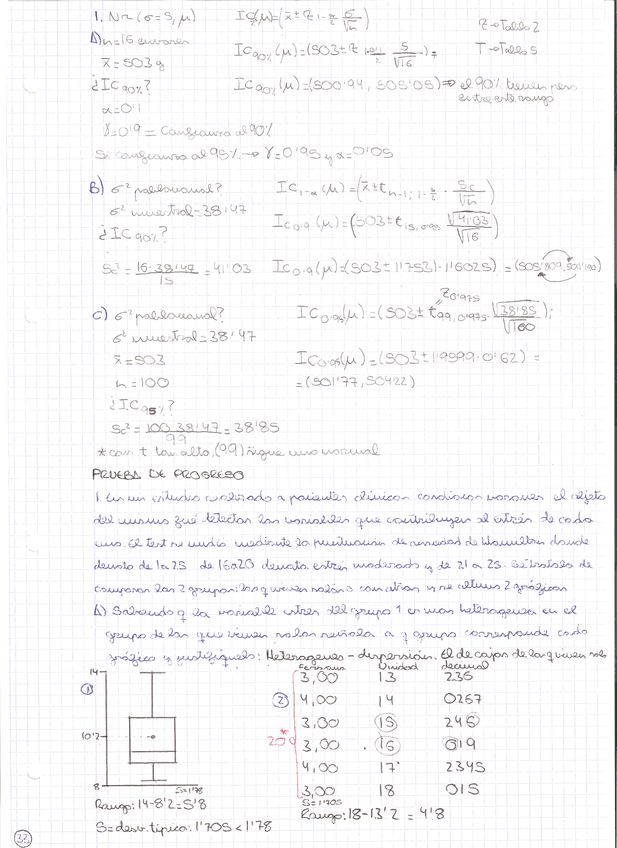 1. N~(σ=5, μ) IC(μ)=(x̄ ± z 1-α/2 σ/√n) Z→Tabla 2
A) n=16 envases T→Tabla 5
x̄=503g IC90%(μ)=(503±z 1-0'1/2 5/√16)
¿IC90%? IC90%(μ)=(500'94, 505'05)⇒ el 90% tienen peso
entre este rango
α=0'1
γ=0'9 = Confianza al 90%
Si confianza al 95% → γ=0'95 y α=0'05
B) σ² poblacional? IC1-α(μ)=(x̄±t n-1; 1-α/2 · Sc/√n)
σ² muestral=38'47
¿IC90%? IC0'9(μ)=(503±t15,0'95 √41'03/√16)
Sc²=16·38'47/15=41'03 IC0'9(μ)=(503±1'753)·1'6025)=(505'809, 500'190)
C) σ² poblacional? IC0'95(μ)=(503±t99,0'975 · √38'85/√100);
Z0'975
σ² muestral=38'47
x̄=503 IC0'95(μ)=(503±1'9599·0'62)=
n=100 =(501'77, 504'22)
¿IC95%?
Sc²=100·38'47/99=38'85
*con t tan alto, (99) sigue una normal
PRUEBA DE PROGRESO
1. En un estudio realizado a pacientes clínicos condición varones el objeto
del mismo fué detectar las variables que contribuyen al estrés de cada
uno. El test se midió mediante la puntuación de ansiedad de Hamilton donde
denota de 1a 25 de 16a20 denota estrés moderado y de 21 a 25. Se trataba de
comparar los 2 grupos: los q viven solos o con otros y se obtuvo 2 gráficos
A) Sabiendo q la variable estres del grupo 1 es mas heterogenea en el
grupo de los que viven solos señala a q grupo corresponde cada
gráfico y justifiquelo: Heterogeneo - dispersión. El de cajas de los q viven solo
14 ① 10'2 8 S=1'78
② 20
Unidad decimal
3,00 13 236
4,00 14 0267
3,00 15 246
3,00 16 019
4,00 17 2345
3,00 18 015
S=1'705
Rango: 14-8'2=5'8 Rango: 18-13'2 = 4'8
S=desv. típica: 1'705<1'78